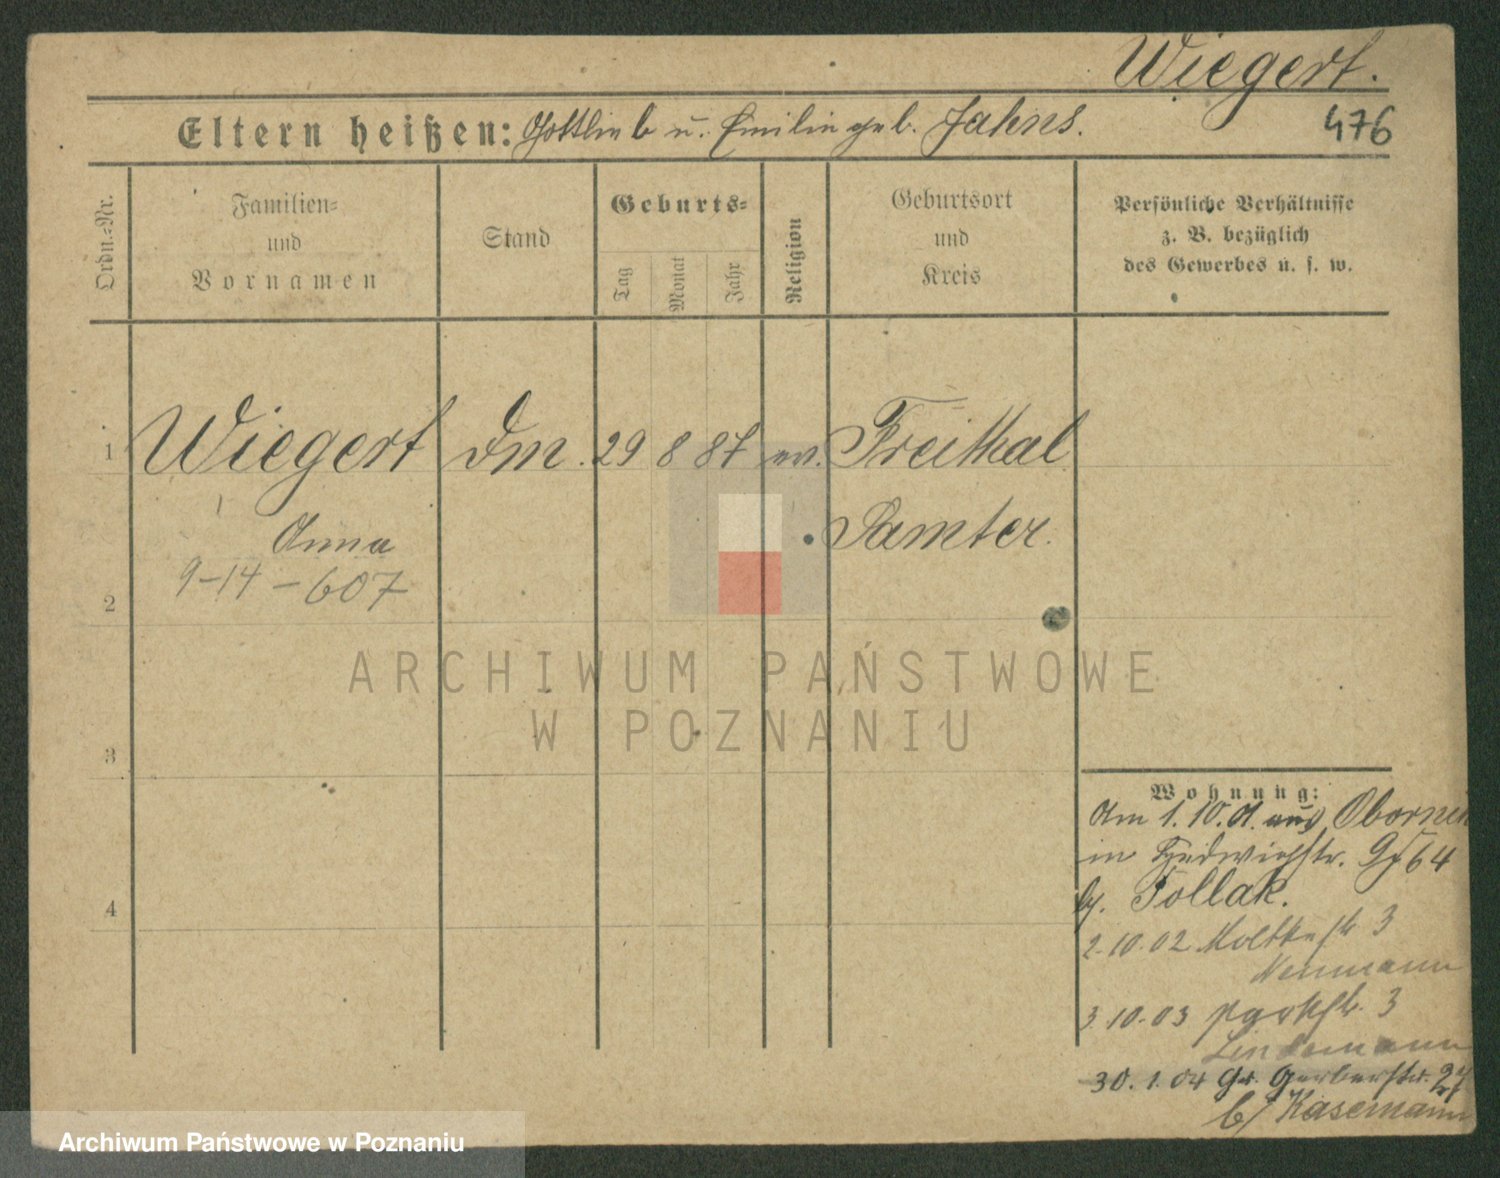 Wiegert.
Eltern heißen: Gottlieb u. Emilie geb. Jahns.
476
Ordn.-Nr.
Familien-
und
Vornamen
Stand
Geburts-
Tag
Monat
Jahr
Religion
Geburtsort
und
Kreis
Persönliche Verhältnisse
z. B. bezüglich
des Gewerbes u. s. w.
1 Wiegert Dm. 29 8 87 ev. Freithal
Anna Samter.
9-14-607
2
3
4
ARCHIWUM PAŃSTWOWE
W POZNANIU
Wohnung:
Am 1.10.01. aus Obornik
in Hedwigstr. 64
b/. Pollak.
2.10.02 Moltkestr 3
Neumann
3.10.03 Parkstr. 3
Lindemann
30.1.04 Gr. Gerberstr. 27
b/ Kasemann
Archiwum Państwowe w Poznaniu